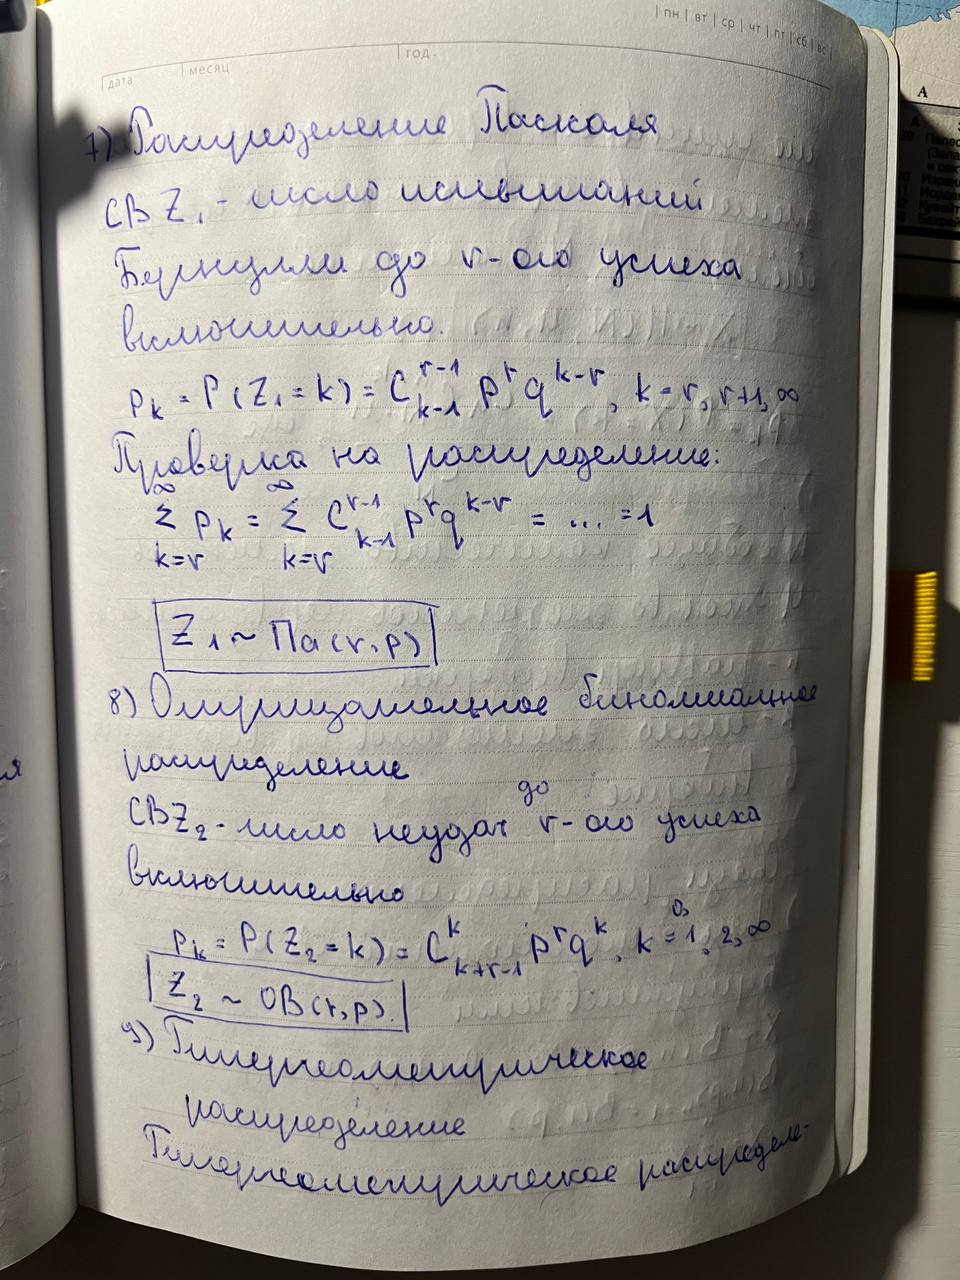 пн | вт | ср | чт | пт | сб | вс
дата месяц год
7) Распределение Паскаля
СВ Z₁ - число испытаний
Бернулли до r-ого успеха
включительно.
Pₖ = P(Z₁ = k) = C_{k-1}^{r-1} p^r q^{k-r}, k = r, r+1, ∞
Проверка на распределение:
∑_{k=r}^{∞} Pₖ = ∑_{k=r}^{∞} C_{k-1}^{r-1} p^r q^{k-r} = ... = 1
Z₁ ~ Па(r, p)
8) Отрицательное биномиальное
распределение
СВ Z₂ - число неудач до r-ого успеха
включительно
Pₖ = P(Z₂ = k) = C_{k+r-1}^{k} p^r q^k, k = 0, 1, 2, ∞
Z₂ ~ OB(r, p).
9) Гипергеометрическое
распределение
Гипергеометрическое распределе-
я
А